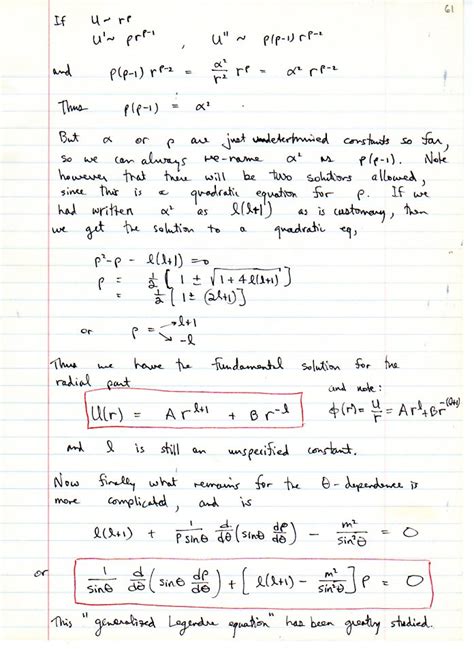 61
If U ~ r^p
U' ~ pr^{p-1} , U'' ~ p(p-1) r^{p-2}
and p(p-1) r^{p-2} = α²/r² r^p = α² r^{p-2}
Thus p(p-1) = α²
But α or p are just undetermined constants so far,
so we can always re-name α² as p(p-1). Note
however that there will be two solutions allowed,
since this is a quadratic equation for p. If we
had written α² as l(l+1) as is customary, then
we get the solution to a quadratic eq,
p²-p - l(l+1) = 0
p = 1/2 [1 ± √(1+4l(l+1))]
= 1/2 [1 ± (2l+1)]
or p = → l+1
→ -l
Thus we have the fundamental solution for the
radial part
and note:
U(r) = A r^{l+1} + B r^{-l} φ(r) = U/r = A r^l + B r^{-(l+1)}
and l is still an unspecified constant.
Now finally what remains for the θ-dependence is
more complicated, and is
l(l+1) + 1/(P sinθ) d/dθ (sinθ dP/dθ) - m²/sin²θ = 0
or 1/sinθ d/dθ (sinθ dP/dθ) + [l(l+1) - m²/sin²θ] P = 0
This "generalized Legendre equation" has been greatly studied.